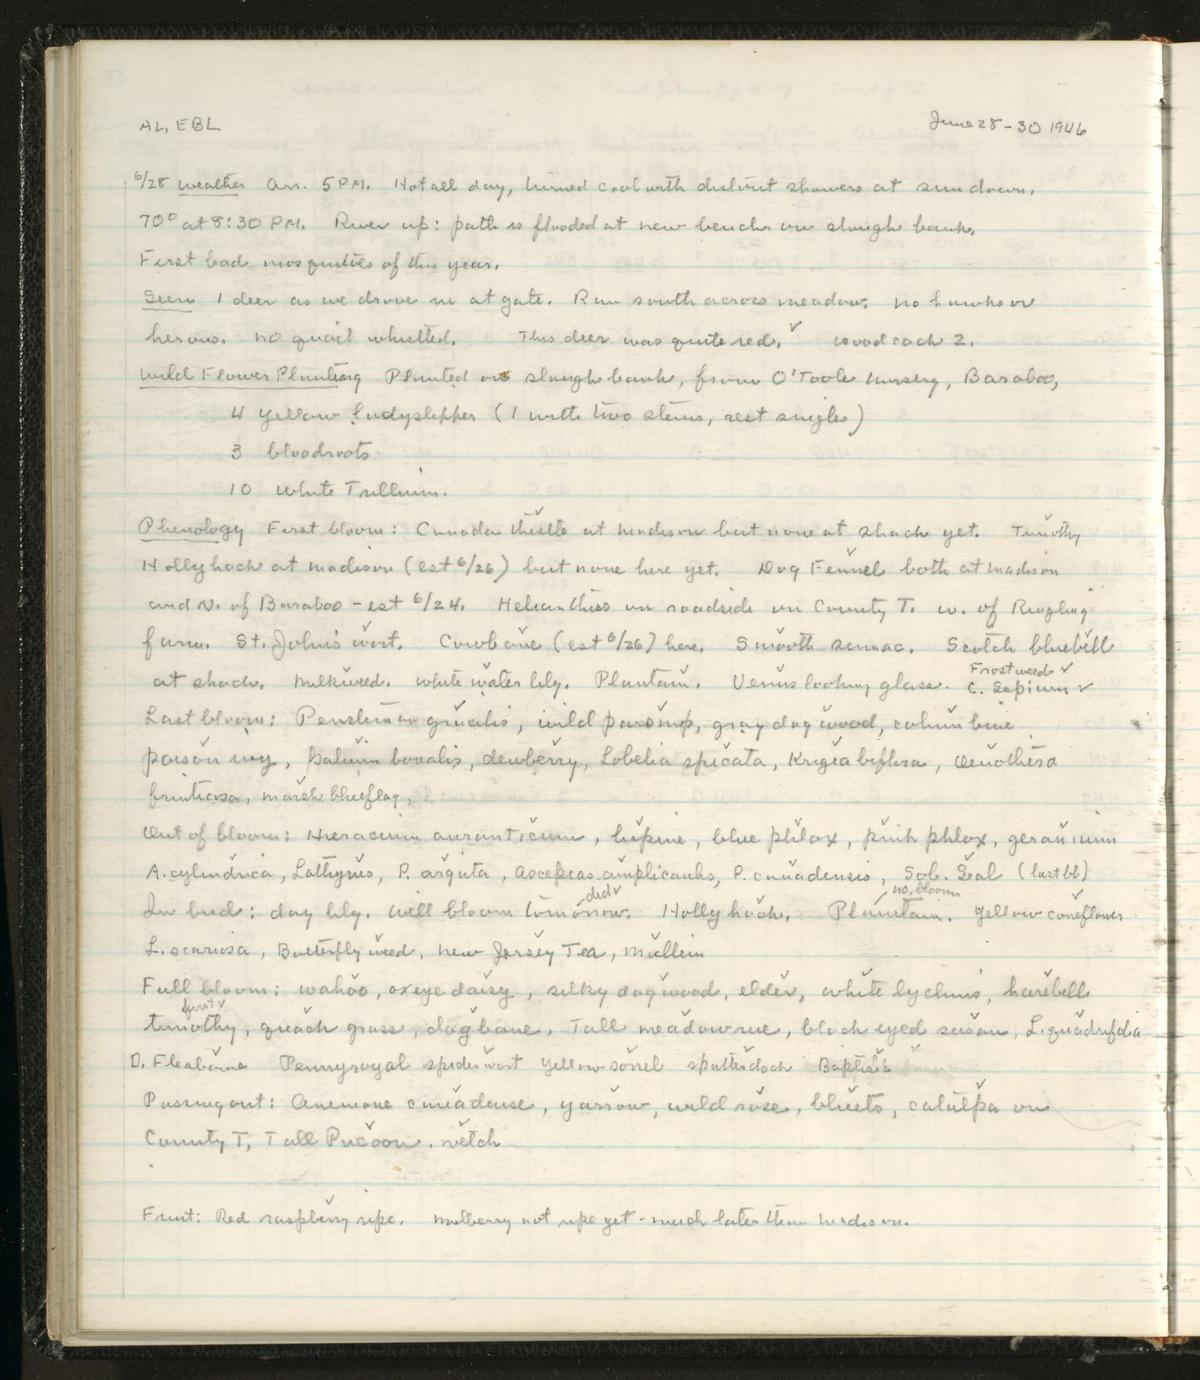 AL, EBL June 28-30 1946
6/28 Weather Arr. 5 PM. Hot all day, turned cool with distant showers at sundown.
70° at 8:30 PM. River up: path is flooded at new bench on slough bank.
First bad mosquitoes of this year.
Seen 1 deer as we drove in at gate. Ran south across meadow. No hawks or
herons. No quail whistled. This deer was quite red. Woodcock 2.
Wild Flower Planting Planted on slough bank, from O'Toole Nursery, Baraboo,
4 yellow ladyslipper (1 with two stems, rest singles)
3 bloodroots
10 White Trillium.
Phenology First bloom: Canada thistle at Madison but none at shack yet. Timothy
Hollyhock at Madison (est 6/26) but none here yet. Dog Fennel both at Madison
and N. of Baraboo - est 6/24. Helianthus on roadside on County T. w. of Ringling
farm. St. John's wort. Cowbane (est 6/26) here. Smooth sumac. Scotch bluebell
Frostweed
at shack. Milkweed. White water lily. Plantain. Venus looking glass. C. Sepium
Last bloom: Penstemon gracilis, wild parsnip, gray dogwood, columbine
poison ivy, Galium borealis, dewberry, Lobelia spicata, Krigia biflora, Oenothera
fruiticosa, marsh blueflag,
Out of bloom: Hieracium auranticum, lupine, blue phlox, pink phlox, geranium
A. cylindrica, Lathyrus, P. arguta, Ascepias amplicaulis, P. canadensis, Sol. Seal (last bl)
did no, bloom
In bud: day lily. Will bloom tomorrow. Hollyhock. Plantain. Yellow coneflower
L. scariosa, Butterfly weed, New Jersey Tea, Mullein
Full bloom: wahoo, oxeye daisy, silky dogwood, elder, white lychnis, harebell
first
timothy, quack grass, dogbane, Tall meadowrue, black eyed susan, L. quadrifolia
D. Fleabane Pennyroyal spiderwort Yellow sorrel spatterdock Baptisia
Passing out: Anemone canadense, yarrow, wild rose, bluets, catalpa on
County T, Tall Pucoon. vetch
Fruit: Red raspberry ripe. Mulberry not ripe yet - much later than Madison.